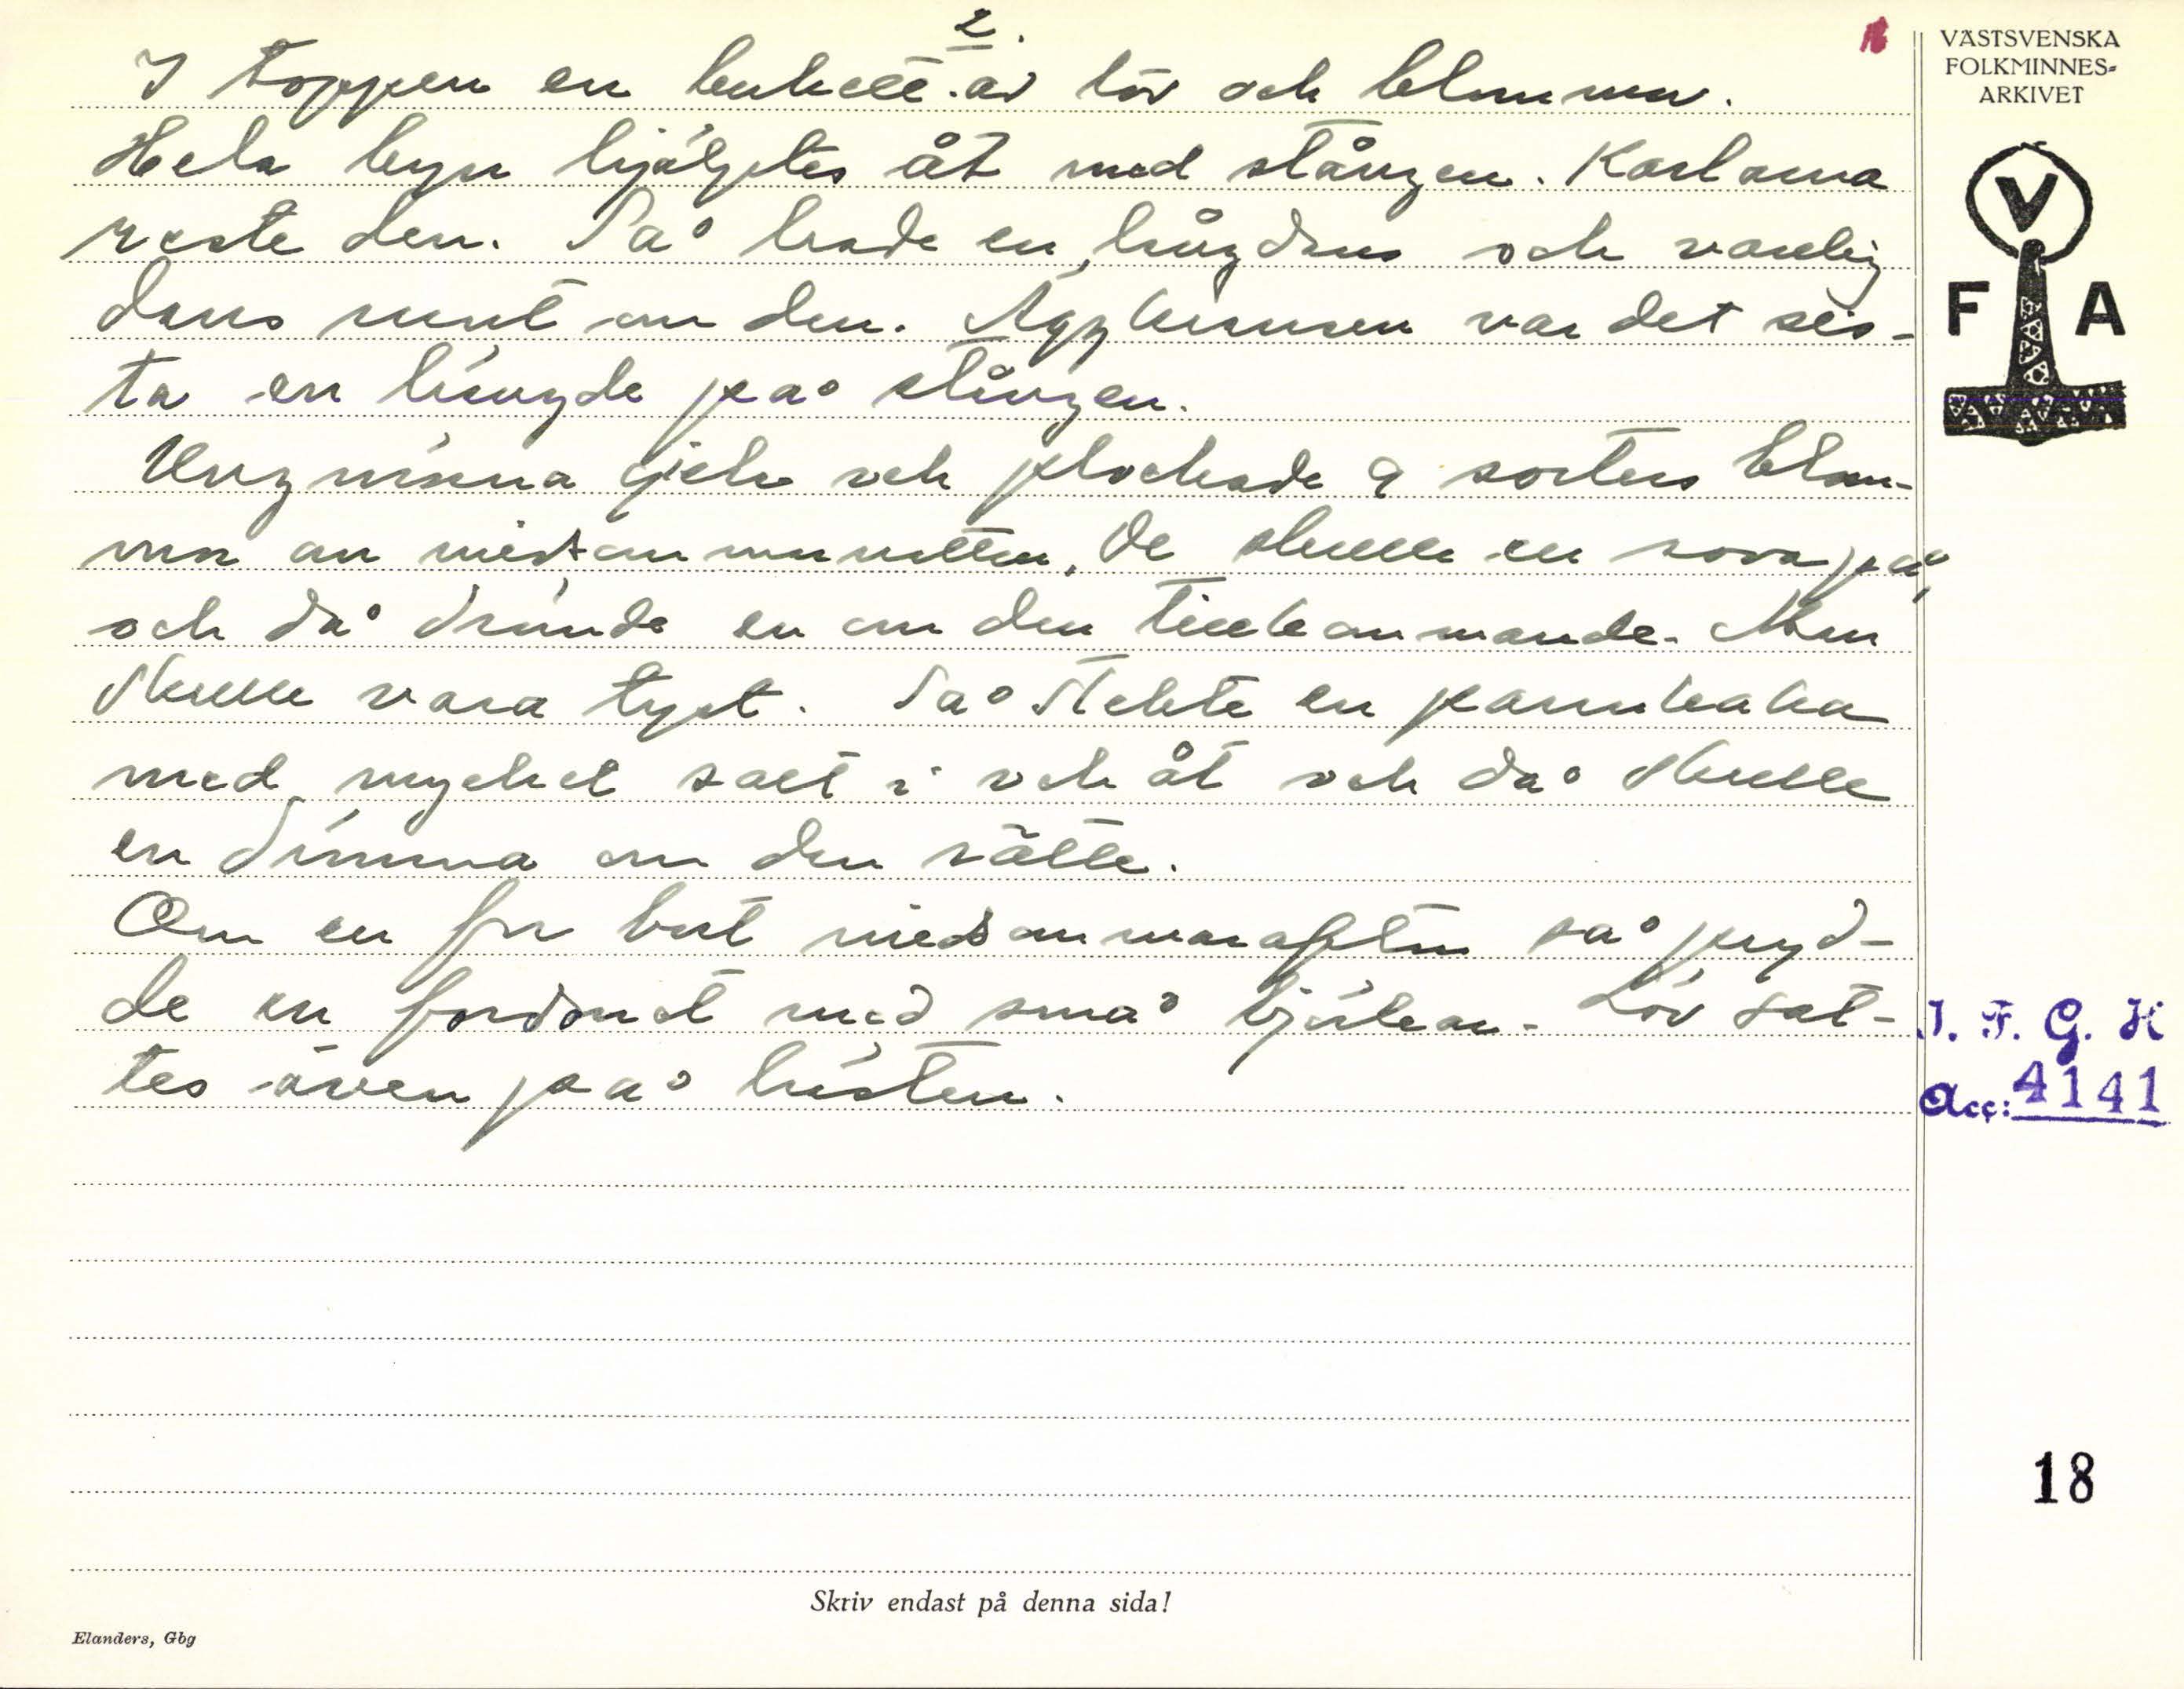 2.
I toppen en bukett av löv och blommor.
Hela byn hjälptes åt med stången. Karlarna
reste den. Så hade en långdans och vanlig
dans runt om den. Äggkransen var det sis-
ta en hängde på stången.
Ungmörna gick och plockade 9 sorters blom-
mor om midsommarnatten. De skulle en sova på,
och då drömde en om den tillkommande. Men
skulle vara tyst. Så stekte en pannkaka
med mycket salt i och åt och då skulle
en drömma om den rätte.
Om en for bort midsommarafton så pryd-
de en fordonet med små björkar. Löv sat-
tes även på hästen.
VÄSTSVENSKA
FOLKMINNES=
ARKIVET
V
F A
I. F. G. H
Acc: 4141
18
Skriv endast på denna sida!
Elanders, Gbg